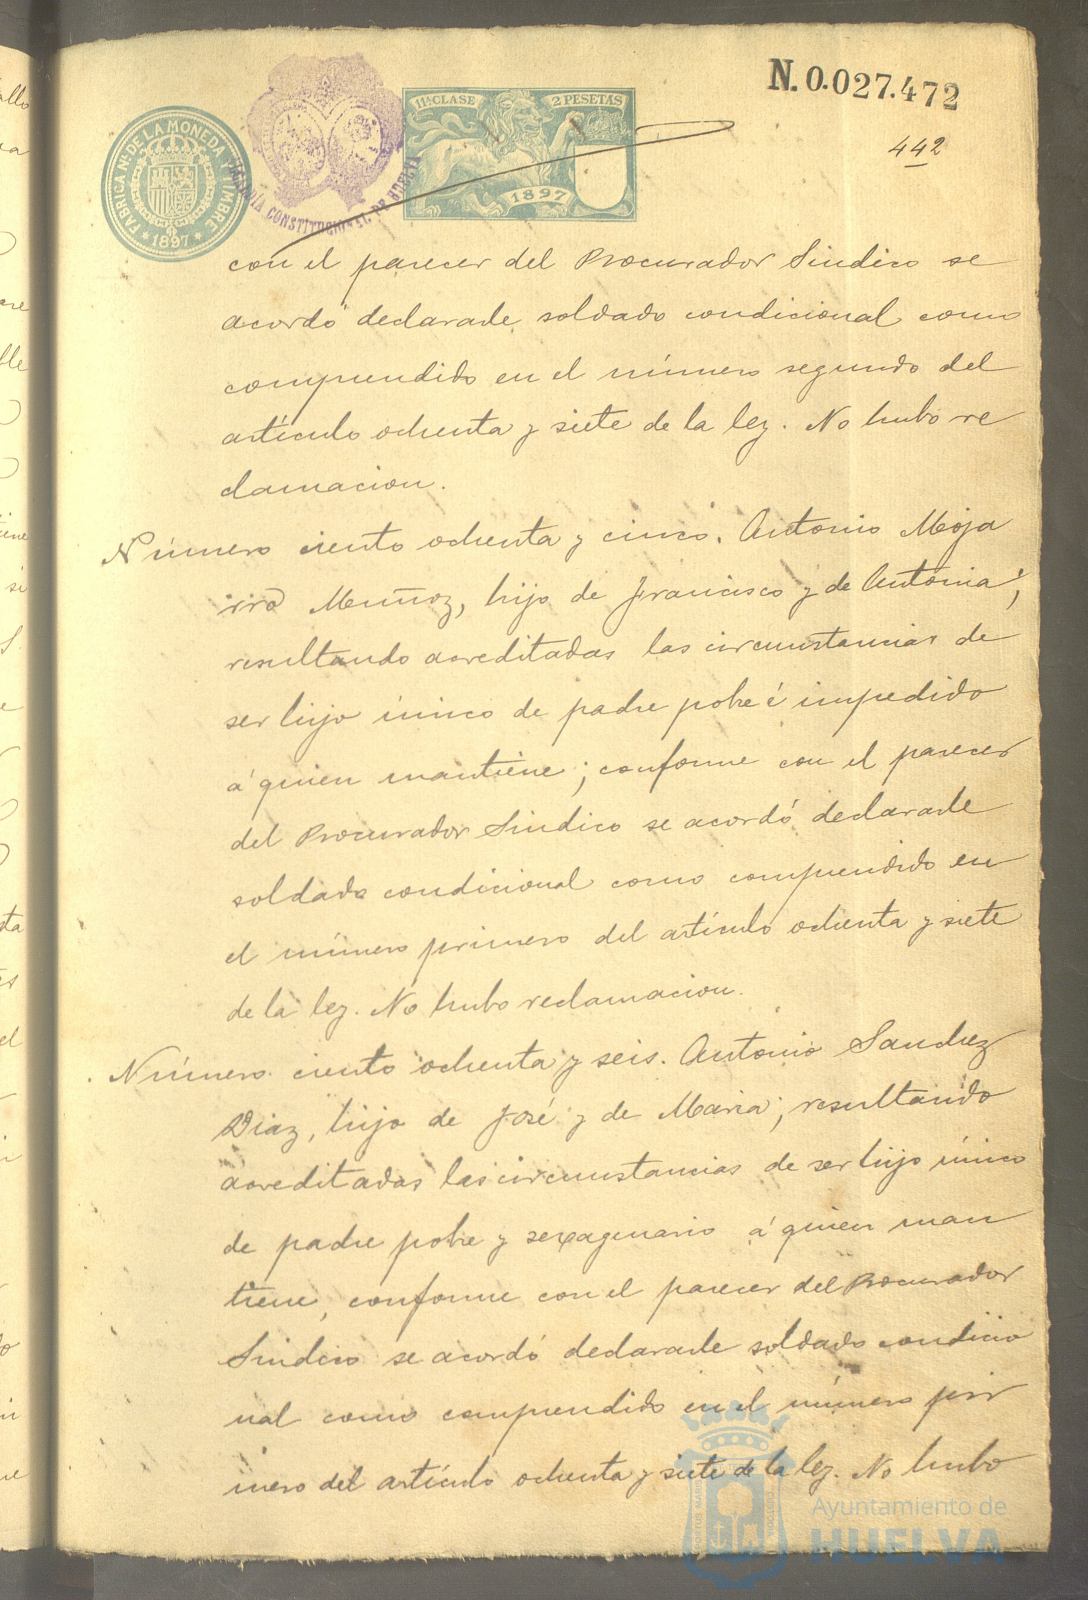 N. 0.027.472
442
FABRICA Nl. DE LA MONEDA Y TIMBRE
* 1897 *
11ª CLASE 2 PESETAS
1897
CONSTITUCIONAL DE HUELVA
con el parecer del Procurador Sindico se
acordó declararle soldado condicional como
comprendido en el número segundo del
artículo ochenta y siete de la ley. No hubo re
clamacion.
Número ciento ochenta y cinco. Antonio Moja
rro Muñoz, hijo de Francisco y de Antonia;
resultando acreditadas las circunstancias de
ser hijo único de padre pobre é impedido
á quien mantiene; conforme con el parecer
del Procurador Sindico se acordó declararle
soldado condicional como comprendido en
el número primero del artículo ochenta y siete
de la ley. No hubo reclamacion.
Número ciento ochenta y seis. Antonio Sanchez
Diaz, hijo de José y de Maria; resultando
acreditadas las circunstancias de ser hijo único
de padre pobre y sexagenario á quien man
tiene, conforme con el parecer del Procurador
Sindico se acordó declararle soldado condicio
nal como comprendido en el número pri
mero del artículo ochenta y siete de la ley. No hubo
Ayuntamiento de
HUELVA